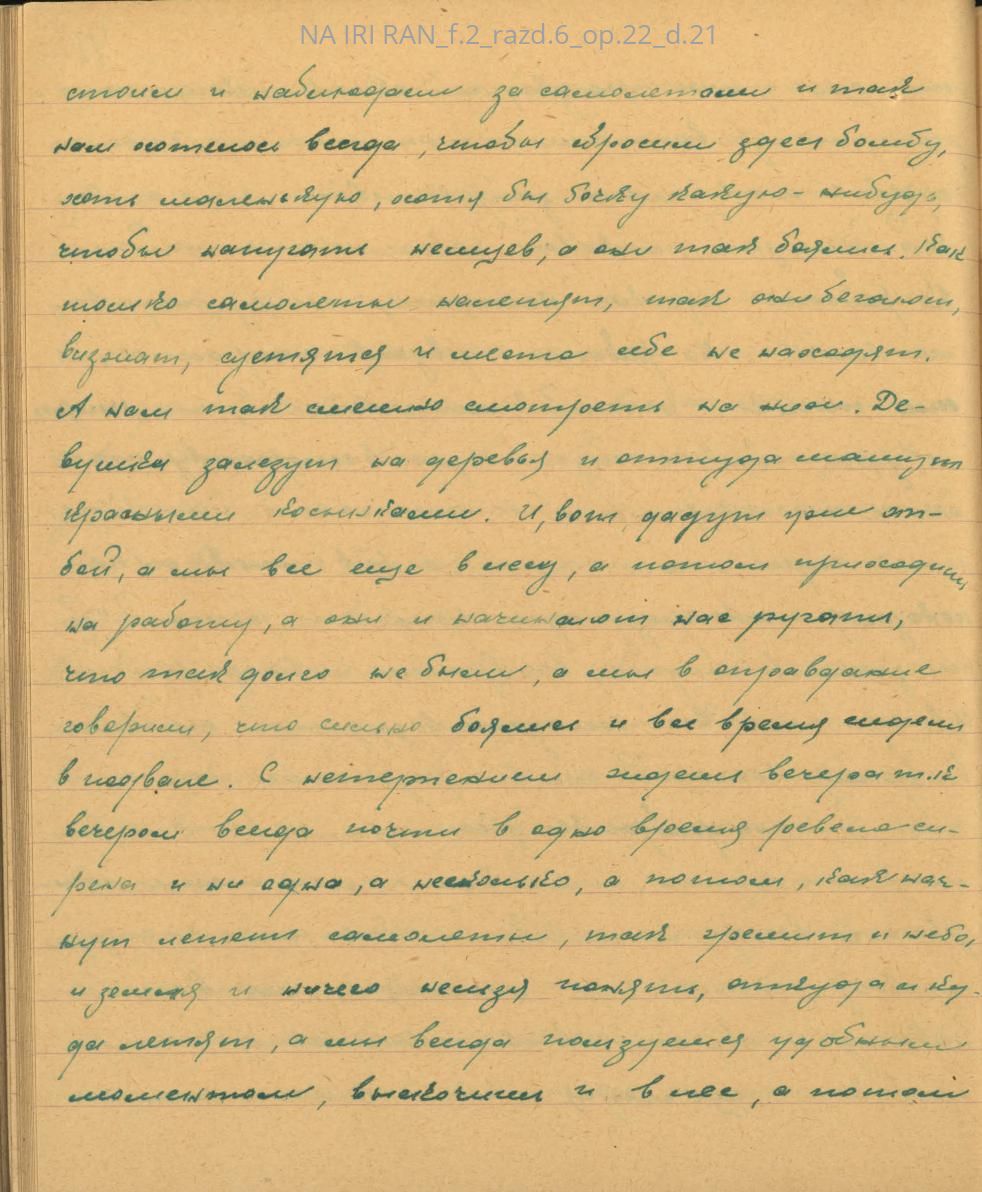 NA IRI RAN_f.2_razd.6_op.22_d.21
стоим и наблюдаем за самолетами и так
нам хотелось всегда, чтобы бросили здесь бомбу,
хоть маленькую, хотя бы бочку какую-нибудь,
чтобы напугать немцев, а они так боялись. Как
только самолеты налетят, так они бегают,
визжат, суетятся и места себе не находят.
А нам так смешно смотреть на них. Де-
вушки залезут на деревья и оттуда машут
красными косынками. И, вот, дадут уже от-
бой, а мы все еще в лесу, а потом приходим
на работу, а они и начинают нас ругать,
что так долго не были, а мы в оправдание
говорим, что сильно боялись и все время сидели
в подвале. С нетерпением ждем вечера т.к
вечером всегда почти в одно время ревела си-
рена и ни одна, а несколько, а потом, как нач-
нут лететь самолеты, так гремит и небо,
и земля и ничего нельзя понять, откуда и ку-
да летят, а мы всегда пользуемся удобным
моментом, выскочим и в лес, а потом